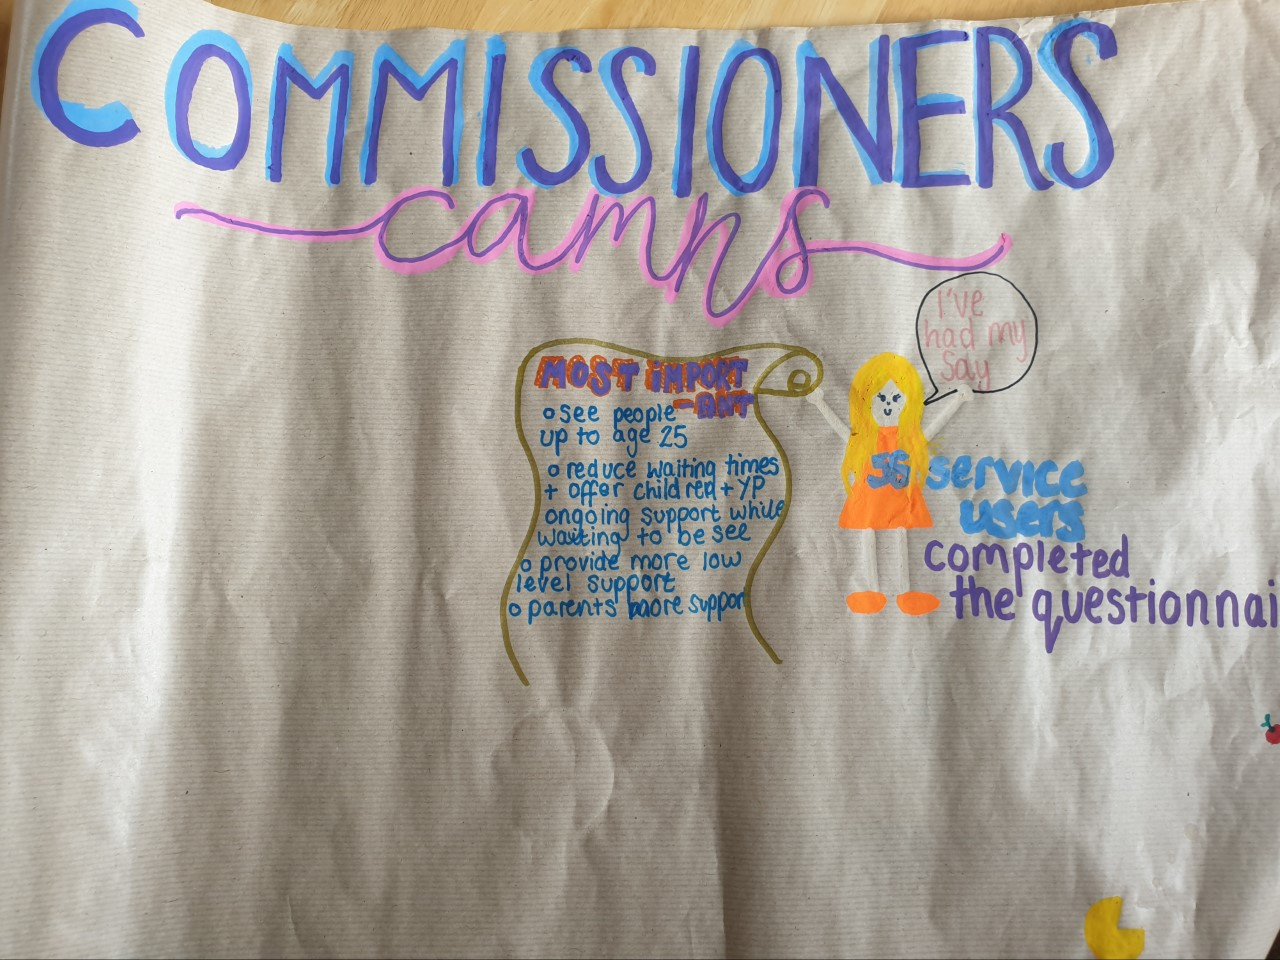 COMMISSIONERS
camhs
I've
had my
say
MOST IMPORT
-ANT
o see people
up to age 25
o reduce waiting times
+ offer children + YP
ongoing support while
waiting to be see
o provide more low
level support
o parents more support
56 service
users
completed
the questionnai